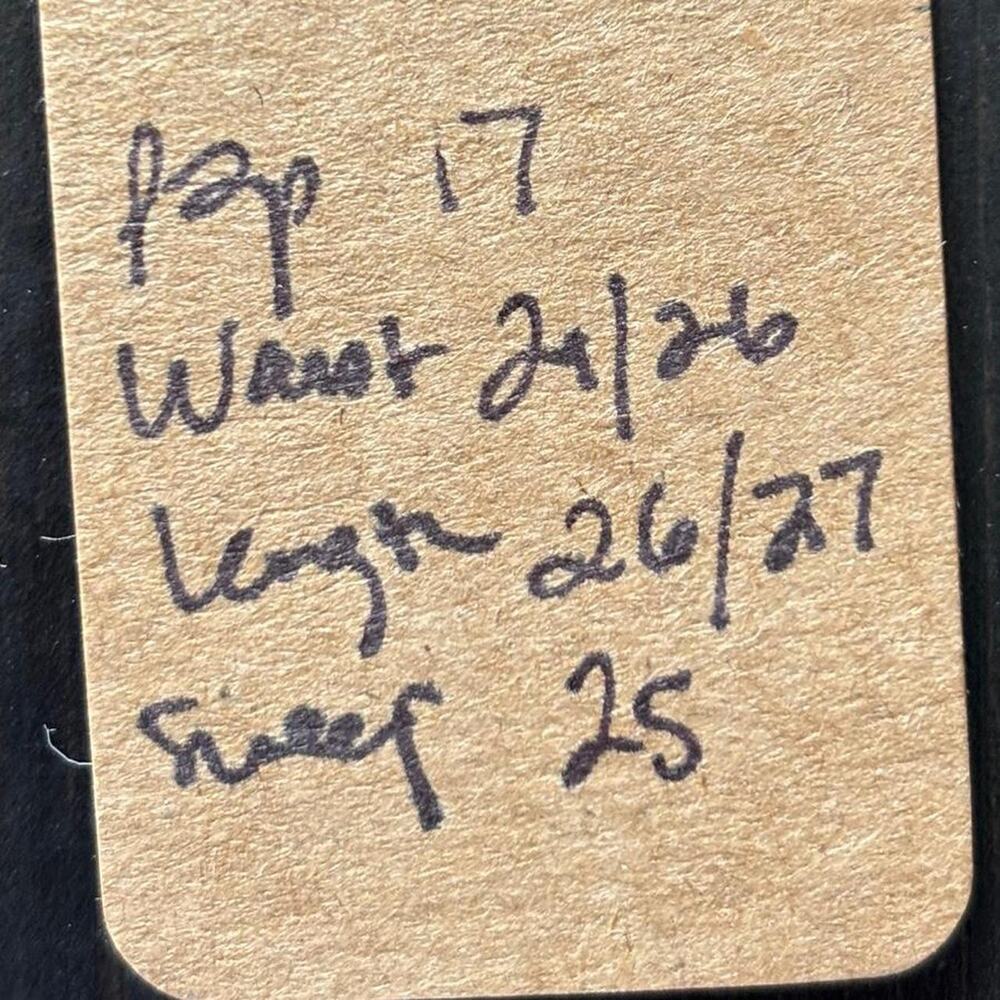 p2p 17
Waist 21/26
Length 26/27
Sweep 25